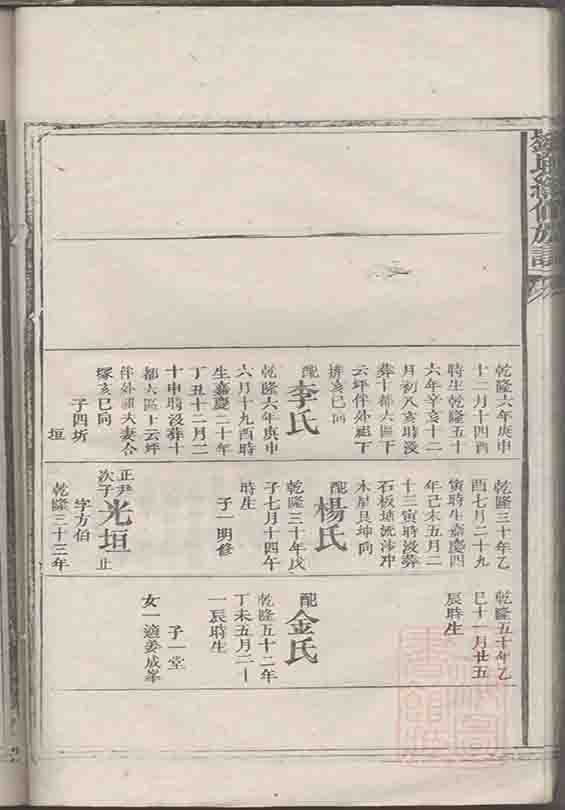 乾隆六年庚申
十二月十四酉
時生乾隆五十
六年辛亥十二
月初八亥時沒
葬十都六區下
云坪伴外祖下
排亥巳向
配李氏
乾隆六年庚申
六月十九酉時
生嘉慶二十年
丁丑十二月二
十申時沒葬十
都六區丁云坪
伴外祖夫妻合
塚亥巳向
子四圻
垣
乾隆三十年乙
酉七月二十九
寅時生嘉慶四
年己未五月二
十三寅時沒葬
石板塘沈沙冲
木星艮坤向
配楊氏
乾隆三十年戊
子七月十四午
時生
子一明修
正尹次子光垣止
字方伯
乾隆三十三年
乾隆五十年乙
巳十一月廿五
辰時生
配金氏
乾隆五十二年
丁未五月二十
一辰時生
子一堂
女一適姜成峯